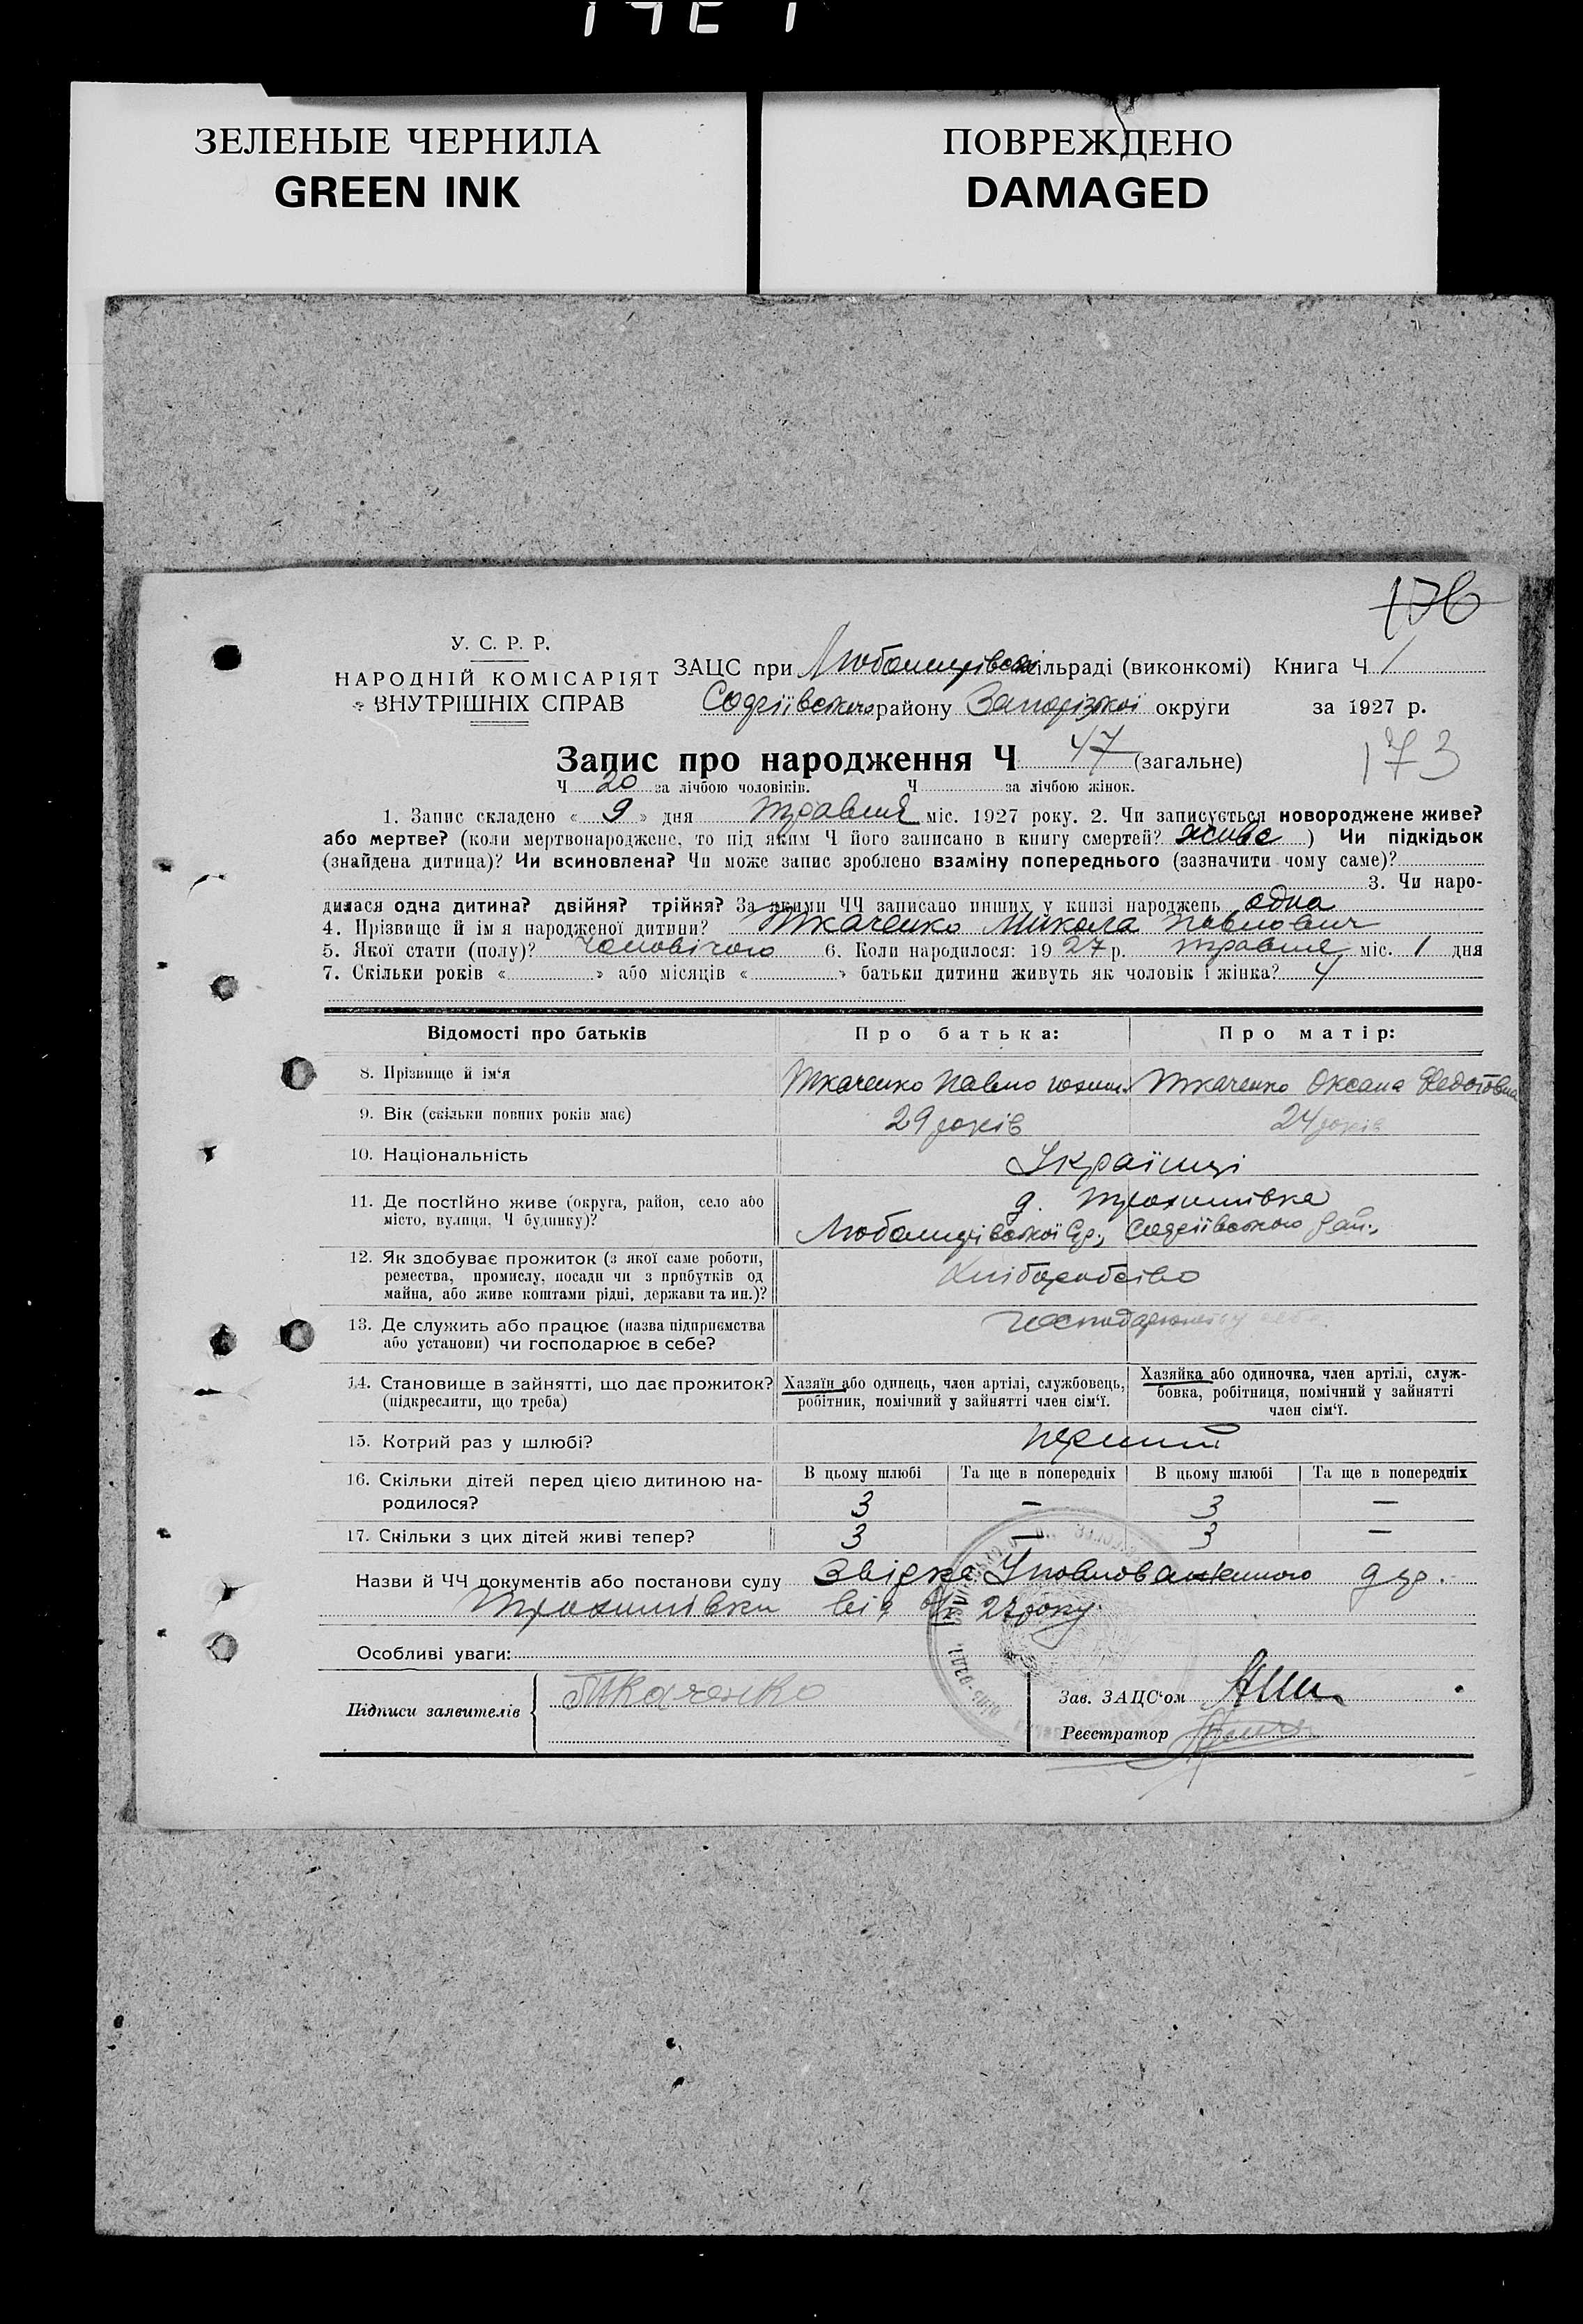 ЗЕЛЕНЫЕ ЧЕРНИЛА
GREEN INK
ПОВРЕЖДЕНО
DAMAGED
176
У. С. Р. Р.
НАРОДНІЙ КОМІСАРІЯТ
ВНУТРІШНІХ СПРАВ
ЗАЦС при Любомирівській сільраді (виконкомі) Книга Ч 1
Софіївського району Запорізької округи за 1927 р.
173
Запис про народження Ч 47 (загальне)
Ч 20 за лічбою чоловіків. Ч за лічбою жінок.
1. Запис складено « 9 » дня травня міс. 1927 року. 2. Чи записується новороджене живе?
або мертве? (коли мертвонароджене, то під яким Ч його записано в книгу смертей? живе ) Чи підкідьок
(знайдена дитина)? Чи всиновлена? Чи може запис зроблено взаміну попереднього (зазначити чому саме)?
3. Чи наро-
дилася одна дитина? двійня? трійня? За якими ЧЧ записано инших у книзі народжень одна
4. Прізвище й ім я народженої дитини? Ткаченко Микола Павлович
5. Якої стати (полу)? чоловічого 6. Коли народилося: 1927 р. травня міс. 1 дня
7. Скільки років « » або місяців « » батьки дитини живуть як чоловік і жінка? 4
Відомості про батьків Про батька: Про матір:
8. Прізвище й ім‘я Ткаченко Павло Ткаченко Оксана Федотовна
9. Вік (скільки повних років має) 29 років 24 років
10. Національність Українці
11. Де постійно живе (округа, район, село або
місто, вулиця, Ч будинку)?
д. Трохимівка
Любомирівської с/р., Софіївського рай.,
12. Як здобуває прожиток (з якої саме роботи,
ремества, промислу, посади чи з прибутків од
майна, або живе коштами рідні, держави та ин.)?
Хліборобство
13. Де служить або працює (назва підприємства
або установи) чи господарює в себе?
14. Становище в зайнятті, що дає прожиток?
(підкреслити, що треба)
Хазяїн або одинець, член артілі, службовець,
робітник, помічний у зайнятті член сім‘ї.
Хазяйка або одиночка, член артілі, служ-
бовка, робітниця, помічний у зайнятті
член сім‘ї.
15. Котрий раз у шлюбі? перший
16. Скільки дітей перед цією дитиною на-
родилося?
В цьому шлюбі Та ще в попередніх В цьому шлюбі Та ще в попередніх
3 — 3 —
17. Скільки з цих дітей живі тепер? 3 — 3 —
Назви й ЧЧ документів або постанови суду Звідка Уповноваженного
Трохимівки від 27 року.
Особливі уваги:
Підписи заявителів Ткаченко
Зав. ЗАЦС‘ом
Реєстратор